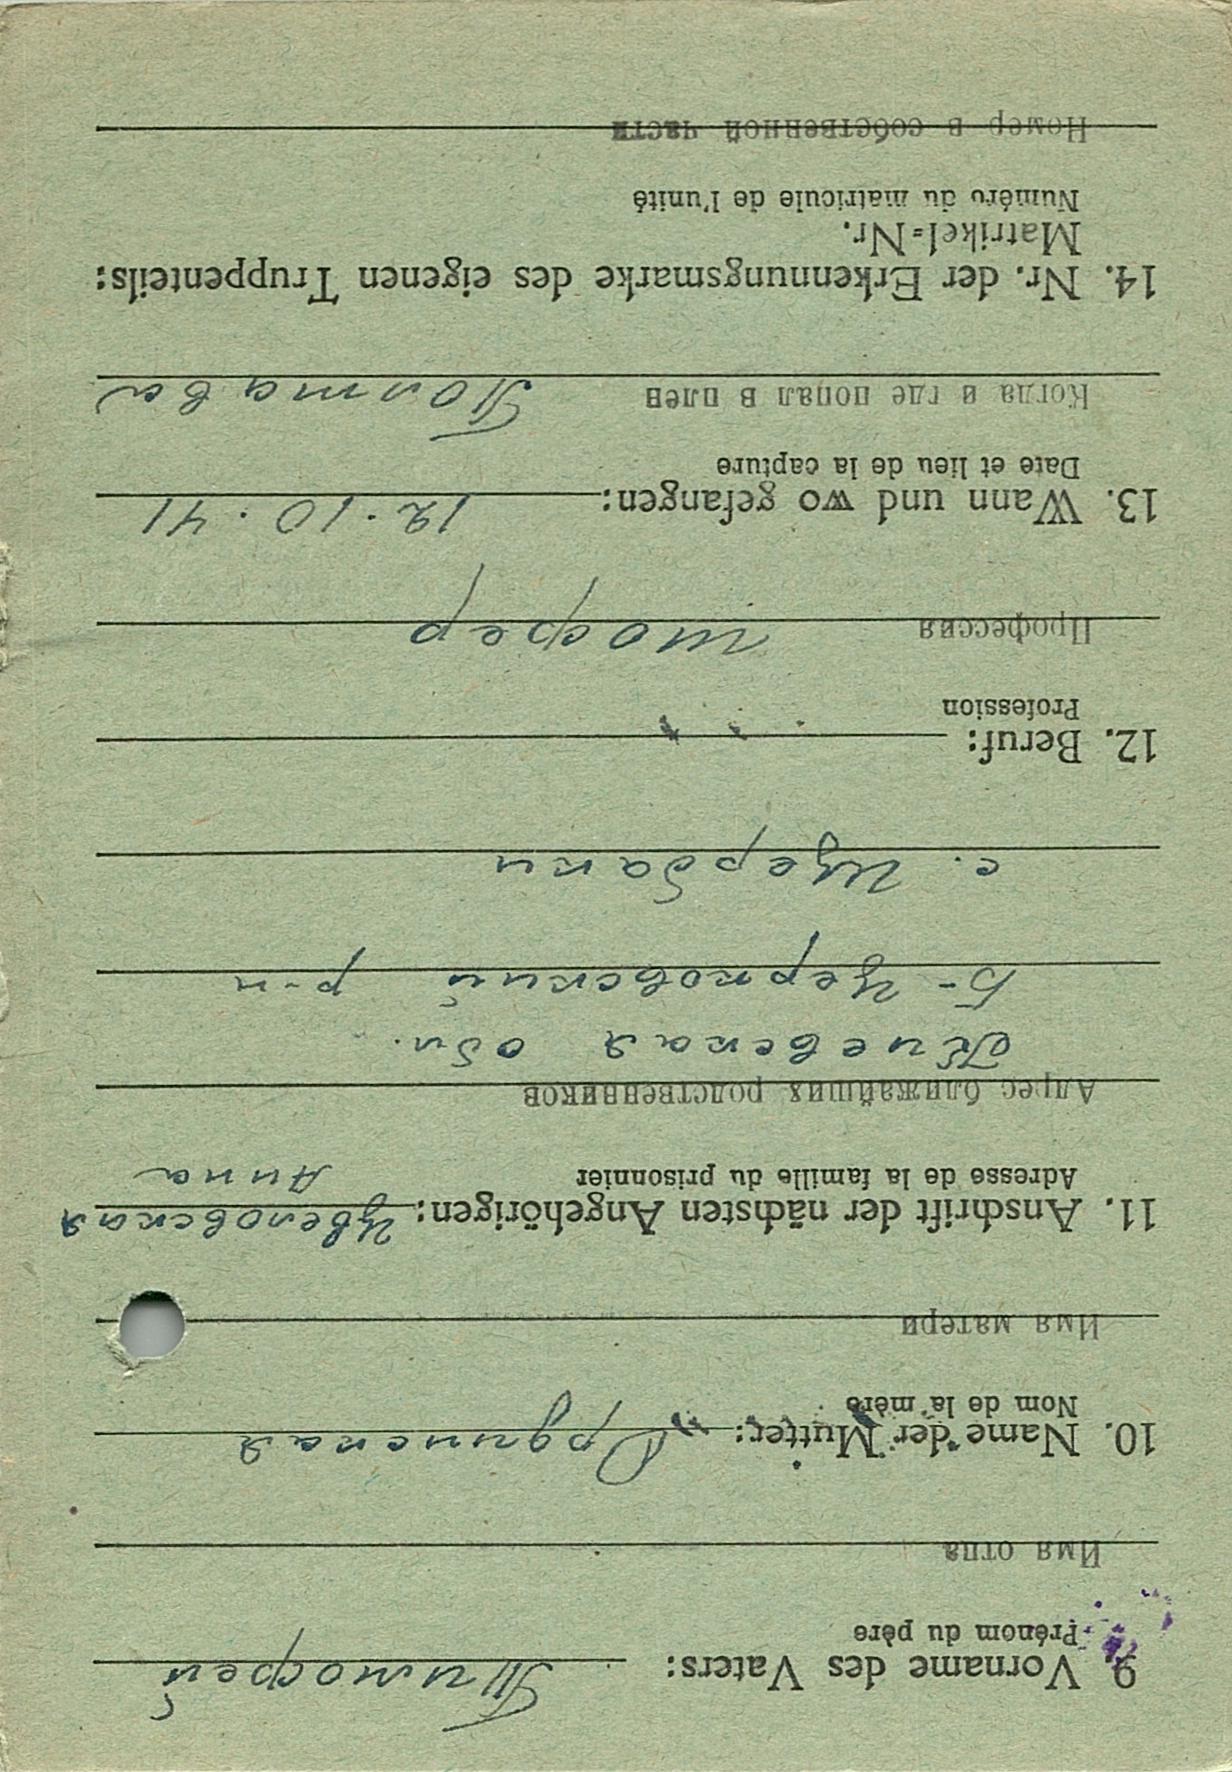 9. Vorname des Vaters: Тимофей
Prénom du père
Имя отца
10. Name der Mutter: Ордынская
Nom de la mère
Имя матери
11. Anschrift der nächsten Angehörigen: Цвеловская
Adresse de la famille du prisonnier Анна
Адрес ближайших родственников
Киевская обл.
Б-Церковский р-н
с. Щербаки
12. Beruf:
Profession
Профессия шофер
13. Wann und wo gefangen: 12.10.41
Date et lieu de la capture
Когда и где попал в плен Полтава
14. Nr. der Erkennungsmarke des eigenen Truppenteils:
Matrikel=Nr.
Numéro du matricule de l'unité
Номер в собственной части